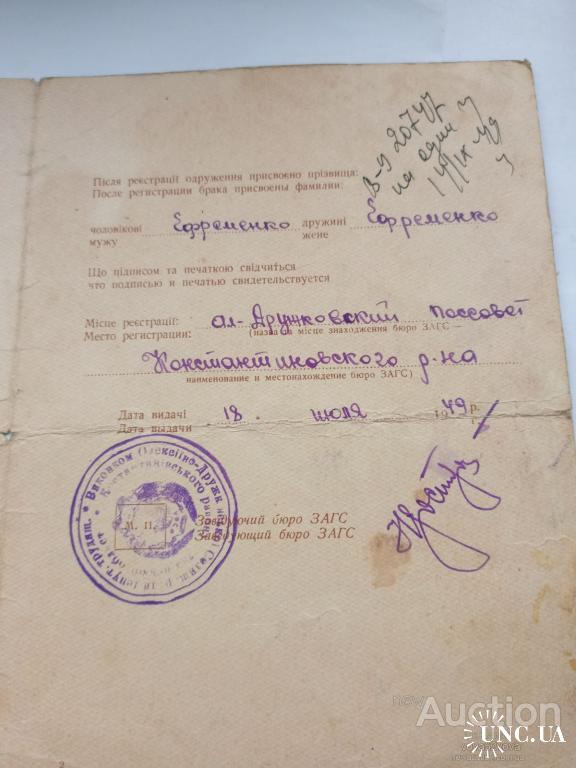 В-9 20747
на один
Після реєстрації одруження присвоєно прізвища:
После регистрации брака присвоены фамилии:
чоловікові Ефременко дружині Ефременко
мужу жене
Що підписом та печаткою свідчиться
что подписью и печатью свидетельствуется
Місце реєстрації: ал-Дружковский поссовет
Место регистрации: (назва та місце знаходження бюро ЗАГС —
Константиновского р-на
наименование и местонахождение бюро ЗАГС)
Дата видачі 18. июля 1949 р.
Дата выдачи г.
Виконком Олексієво-Дружк
Костянтинівського район
М. П.
Завідуючий бюро ЗАГС
Заведующий бюро ЗАГС
2
new Auction
UNC.UA